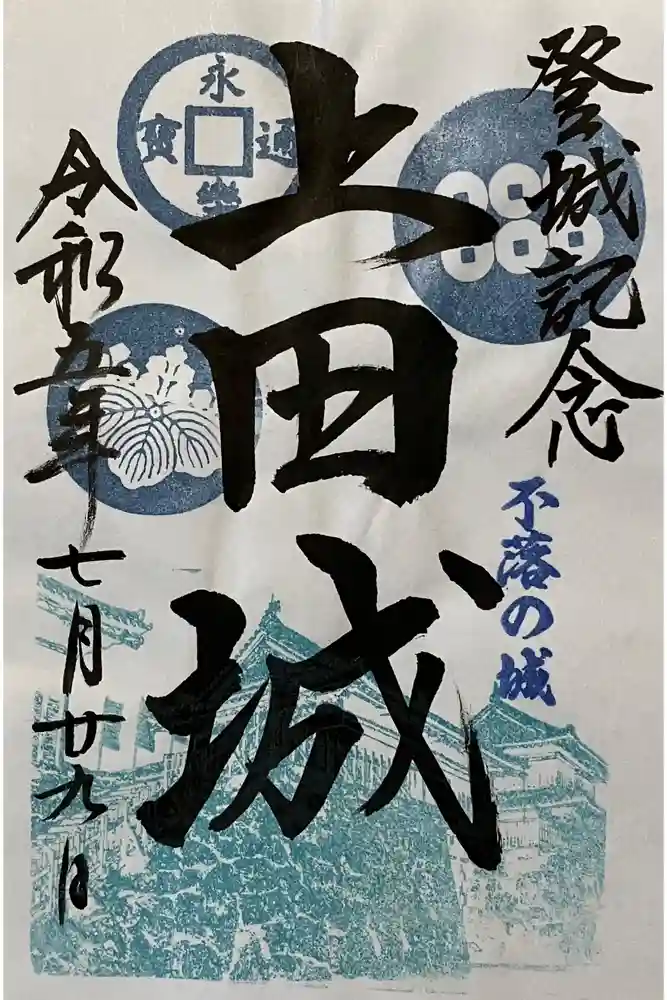 登城記念
不落の城
上田城
永樂通寳
令和五年七月廿九日